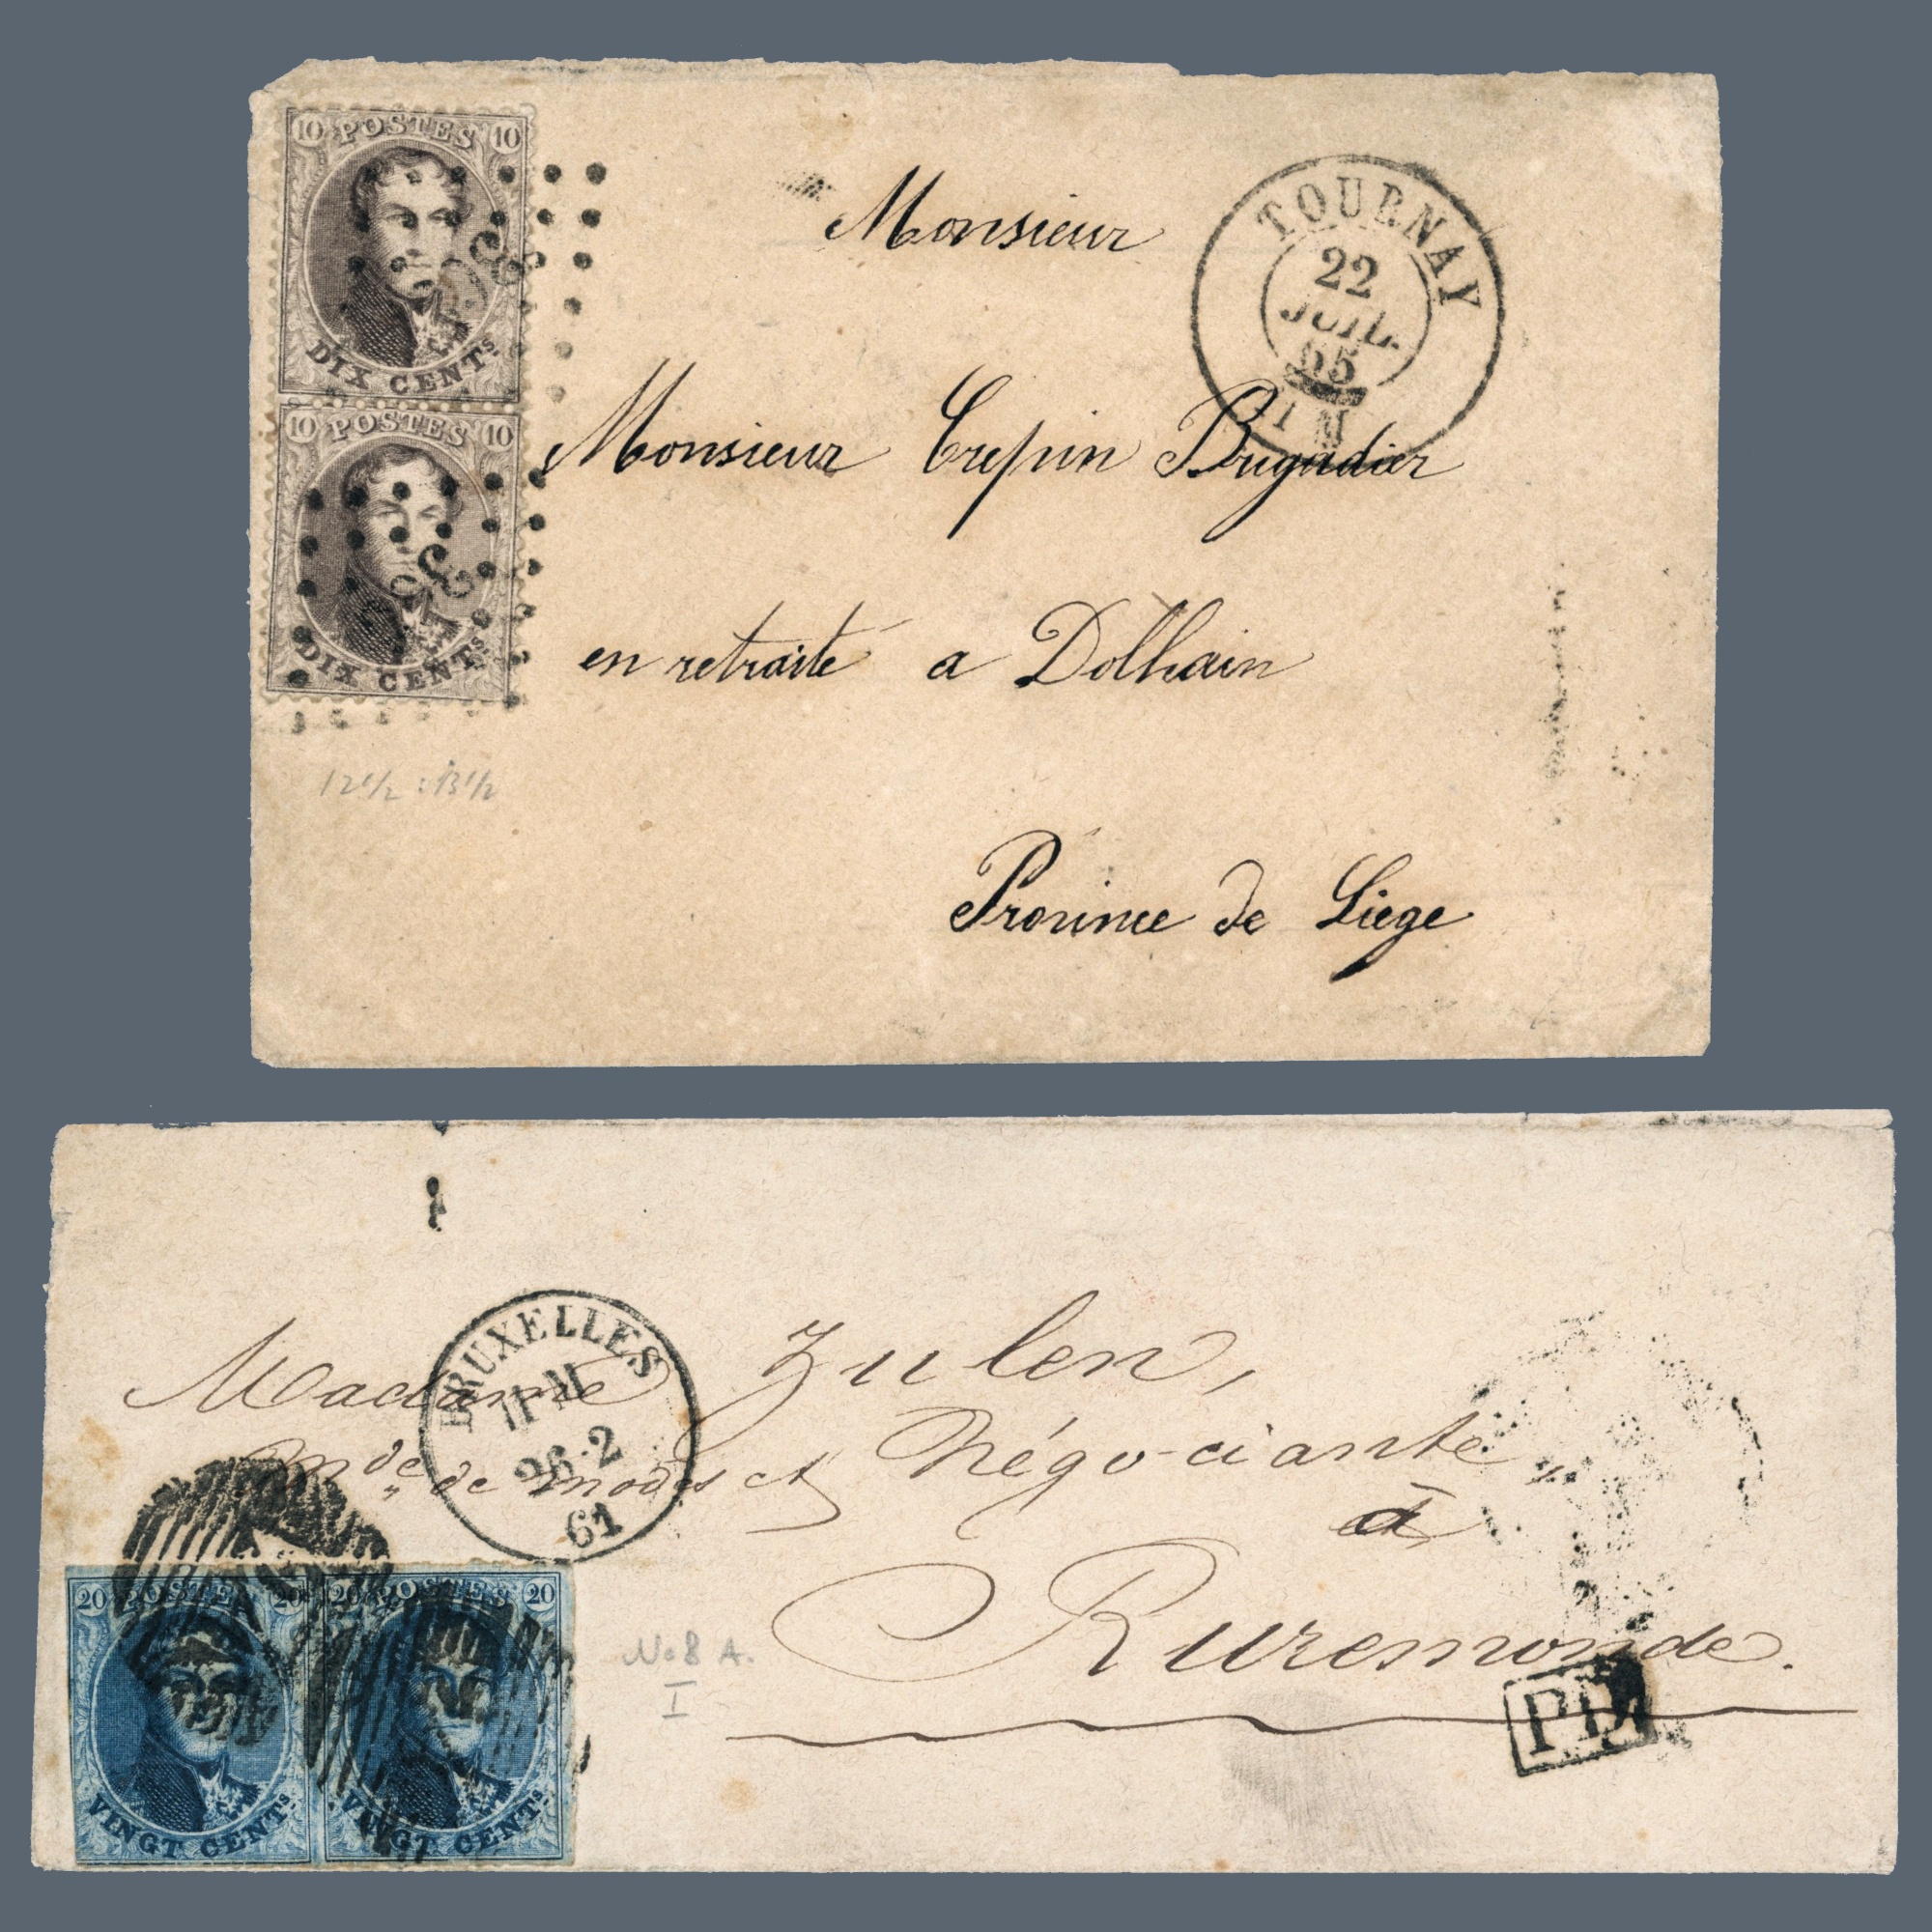 10 POSTES 10
DIX CENTs
10 POSTES 10
DIX CENTs
TOURNAY
22
JUIL.
65
Monsieur
Monsieur Crepin Brigadier
en retraite a Dolhain
12 1/2 : 13 1/2
Province de Liege
BRUXELLES
26·2
61
Madame Zulen,
Mde de modes et Négociante
à
Ruremonde.
20 POSTES 20
VINGT CENTs
20 POSTES 20
VINGT CENTs
No 8 A.
I
PD